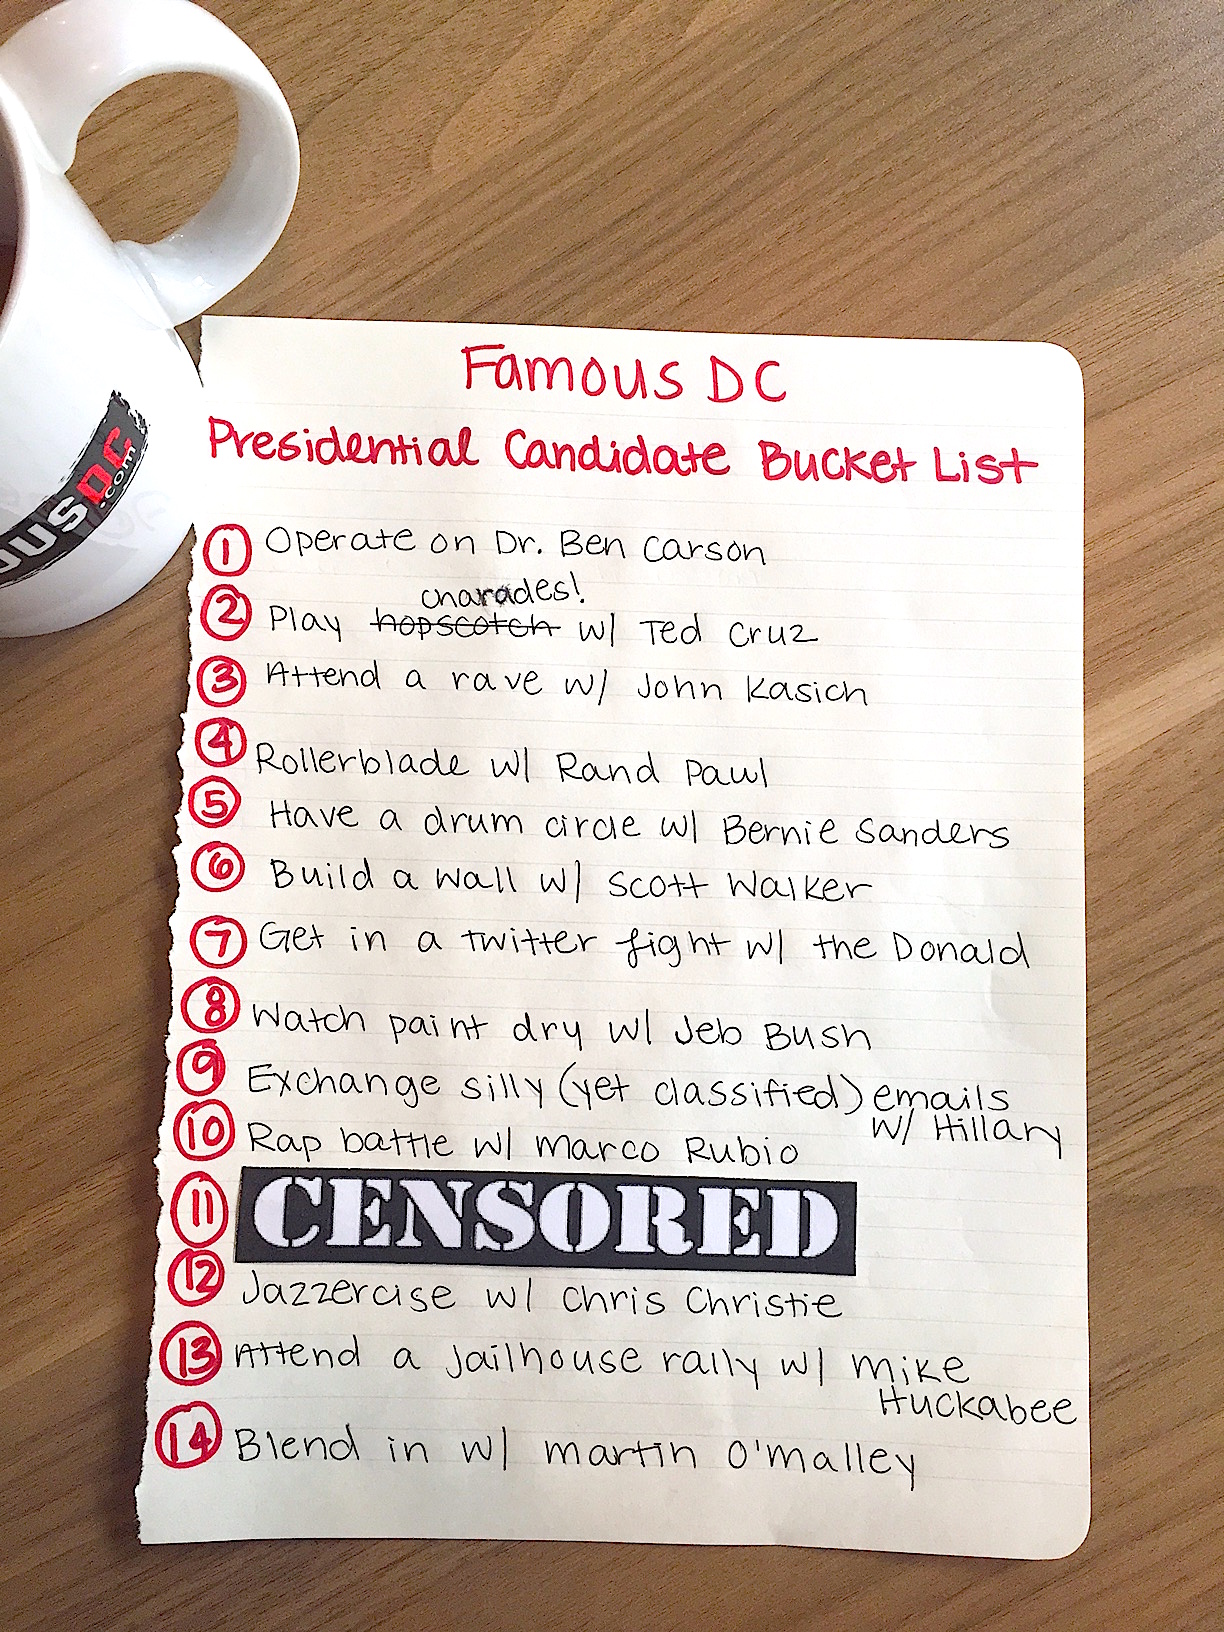 OUSDC
.com
Famous DC
Presidential Candidate Bucket List
1 Operate on Dr. Ben Carson
charades!
2 Play hopscotch w/ Ted Cruz
3 Attend a rave w/ John Kasich
4 Rollerblade w/ Rand Paul
5 Have a drum circle w/ Bernie Sanders
6 Build a wall w/ Scott Walker
7 Get in a twitter fight w/ the Donald
8 Watch paint dry w/ Jeb Bush
9 Exchange silly (yet classified) emails
w/ Hillary
10 Rap battle w/ Marco Rubio
11 CENSORED
12 Jazzercise w/ Chris Christie
13 Attend a jailhouse rally w/ Mike
Huckabee
14 Blend in w/ Martin O'Malley